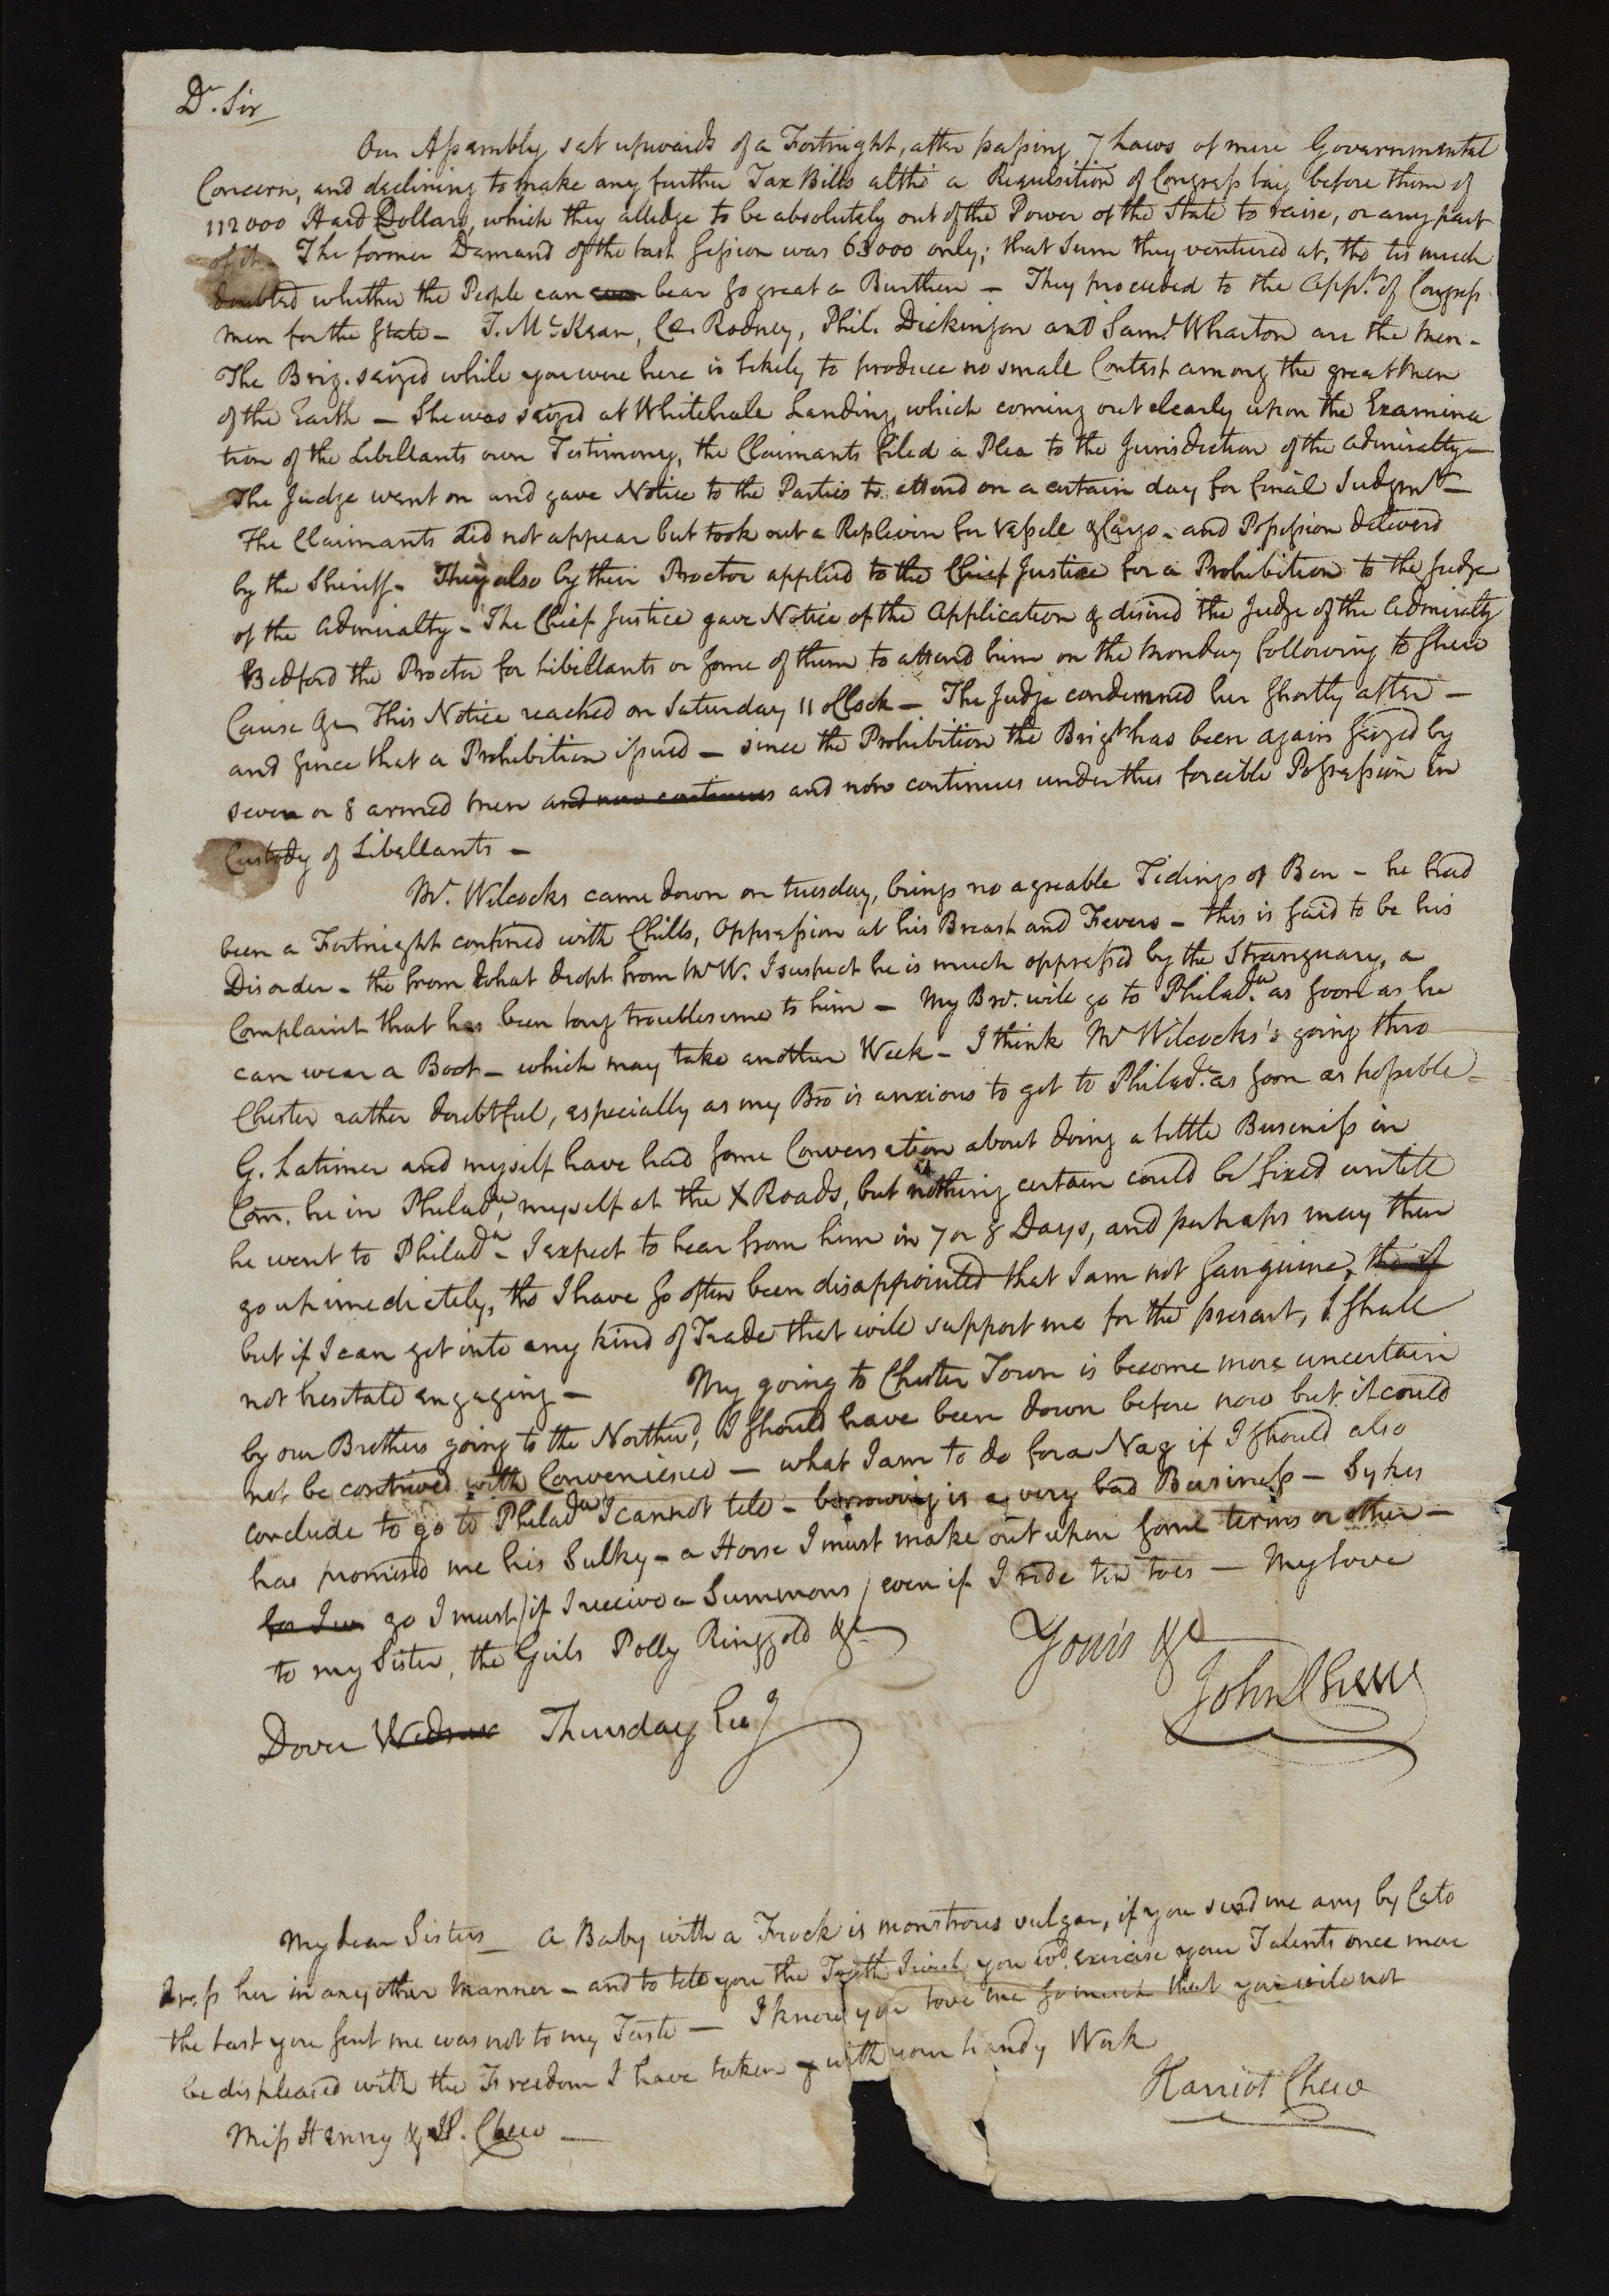 Dr. Sir
Our Assembly sat upwards of a Fortnight, after passing 7 Laws of mere Governmental
Concern, and declining to make any further Tax Bills altho' a Requisition of Congress lay before them of
112000 Hard Dollars, which they alledge to be absolutely out of the Power of the State to raise, or any part
of it. The former Demand of the last Session was 63000 only; that Sum they ventured at, tho tis much
doubted whether the People can even bear so great a Burthen — They proceeded to the Appt. of Congress
men for the State — T. McKean, Cæ. Rodney, Phil. Dickinson and Saml. Wharton are the men —
The Brig. seized while you were here is likely to produce no small Contest among the great Men
of the Earth — She was seized at Whitehale Landing, which coming out clearly upon the Examina
tion of the Libellants own Testimony, the Claimants filed a Plea to the Jurisdiction of the Admiralty —
The Judge went on and gave Notice to the Parties to attend on a certain day for final Judgmt —
The Claimants did not appear but took out a Replevin for Vessele & Cargo — and Possession deliverd
by the Sheriff — They also by their Proctor applied to the Chief Justice for a Prohibition to the Judge
of the Admiralty — The Chief Justice gave Notice of the Application & desired the Judge of the Admiralty
Bedford the Proctor for Libellants or some of them to attend him on the Monday following to shew
Cause &c This Notice reached on Saturday 11 oClock — The Judge condemned her shortly after —
and since that a Prohibition issued — since the Prohibition the Brigt has been again seized by
seven or 8 armed men and now continues and now continues under this forcible Possession in
Custody of Libellants —
Mr. Wilcocks came down on tuesday, brings no agreable Tidings of Ben — he had
been a Fortnight confined with Chills, Oppression at his Breast and Fevers — this is said to be his
Disorder — tho from what dropt from Mr W. I suspect he is much oppressed by the Stranguary, a
Complaint that has been long troublesome to him — My Bro. wile go to Philada. as soon as he
can wear a Boot — which may take another Week — I think Mr Wilcocks's going thro
Chester rather doubtful, especially as my Bro is anxious to get to Philada. as soon as possible —
G. Latimer and myself have had some Conversation about doing a little Business in
Com. he in Philada, myself at the X Roads, but nothing certain could be fixed untile
he went to Philada — I expect to hear from him in 7 or 8 Days, and perhaps may then
go up imediately, tho I have so often been disappointed that I am not sanguine, tho if
but if I can get into any kind of Trade that wile support me for the present, I shall
not hesitate engaging — My going to Chester Town is become more uncertain
by our Brothers going to the Northerd, I should have been down before now but it could
not be contrived with Convenience — what I am to do for a Nag if I should also
conclude to go to Philada I cannot tele — borrowing is a very bad Business — Sykes
has promised me his Sulky — a Horse I must make out upon some terms or other —
for I go I must / if I receive a Summons / even if I ride ten toes — My love
to my Sister, the Girls Polly Ringgold &c
Yours &c
John Chew
Dover Wednes Thursday Eveg
My dear Sisters — a Baby with a Frock is monstrous vulgar, if you send me any by Cato
dress her in any other manner — and to tele you the Truth I wish you wd. exercise your Talents once more
the last you sent me was not to my Taste — I know you love me so much that you wile not
be displeased with the Freedom I have taken with your handy Work
Harriot Chew
Miss Henny & H. Chew —